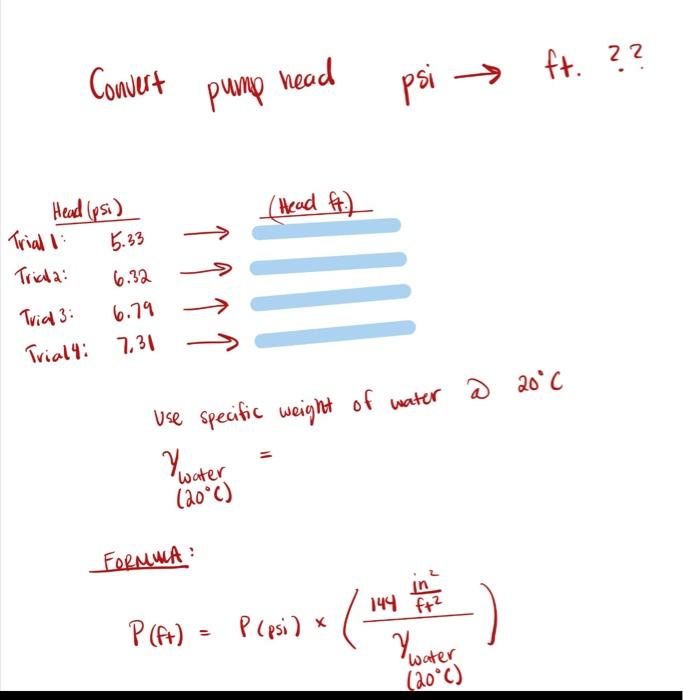 Convert pump head psi → ft. ??
Head (psi) (Head ft.)
Trial 1: 5.33 →
Trial 2: 6.32 →
Trial 3: 6.79 →
Trial 4: 7.31 →
Use specific weight of water @ 20°C
γwater (20°C) =
FORMULA:
P(ft) = P(psi) × (144 in²/ft² / γwater (20°C))